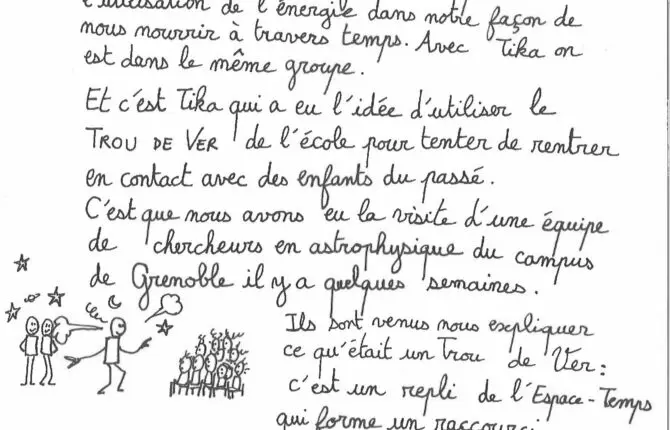 l'utilisation de l'énergie dans notre façon de
nous nourrir à travers temps. Avec Tika on
est dans le même groupe.
Et c'est Tika qui a eu l'idée d'utiliser le
TROU DE VER de l'école pour tenter de rentrer
en contact avec des enfants du passé.
C'est que nous avons eu la visite d'une équipe
de chercheurs en astrophysique du campus
de Grenoble il y a quelques semaines.
Ils sont venus nous expliquer
ce qu'était un Trou de Ver :
c'est un repli de l'Espace-Temps
qui forme un raccourci